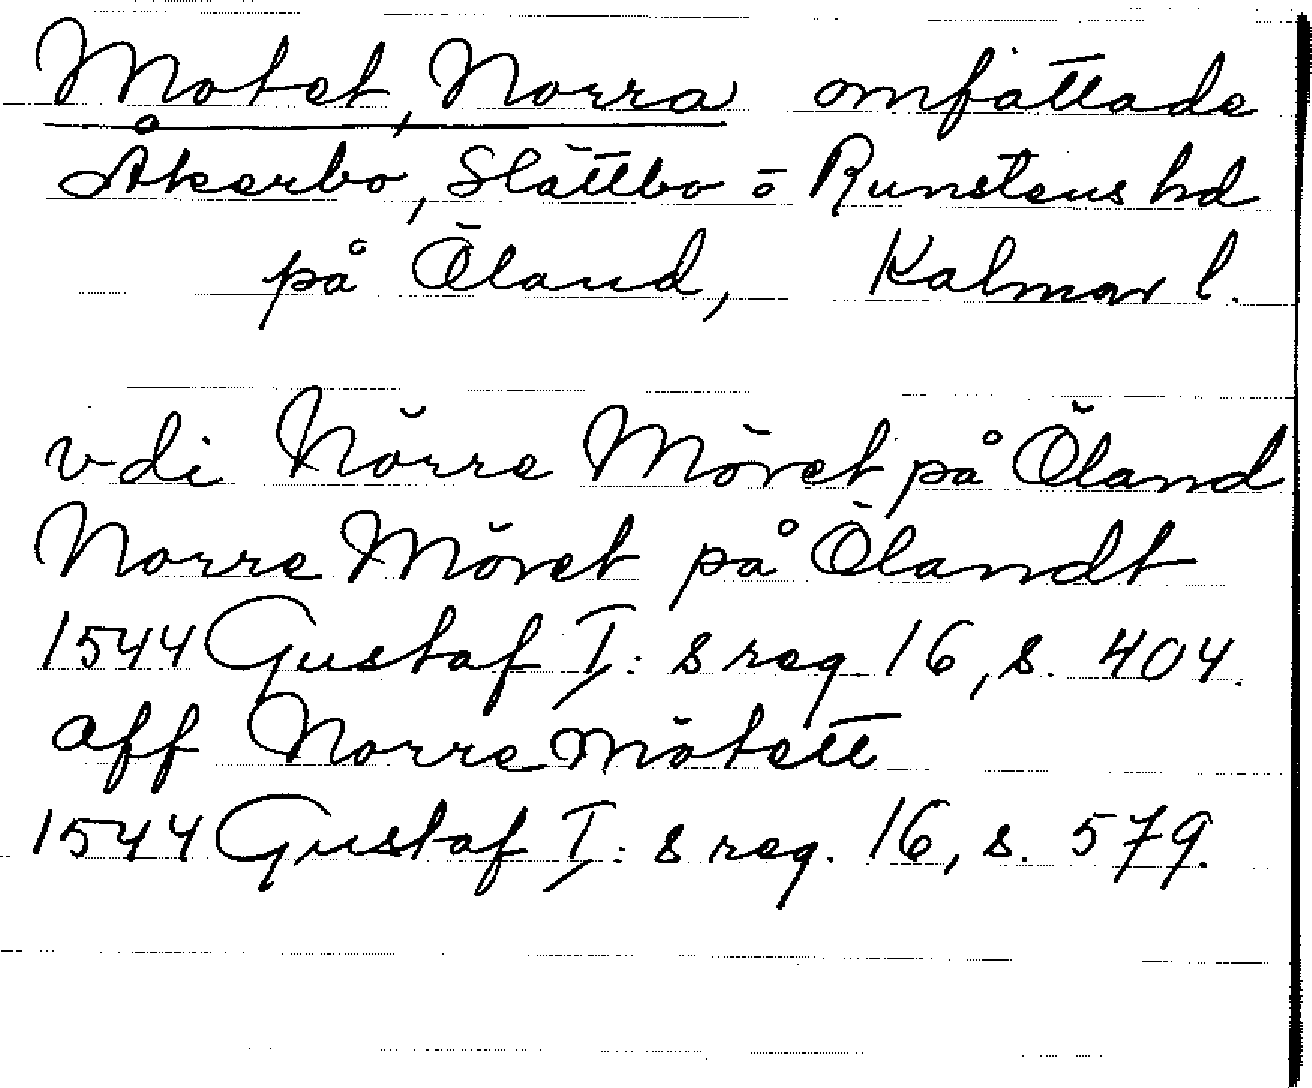 Motet, Norra omfattade
Åkerbo, Slättbo o Runstens hd
på Öland, Kalmar l.
vdi Nörre Mövet på Öland
Norre Mövet på Ölandt
1544 Gustaf I: s reg 16, s. 404.
aff Norre mötett
1544 Gustaf I: s reg. 16, s. 579.